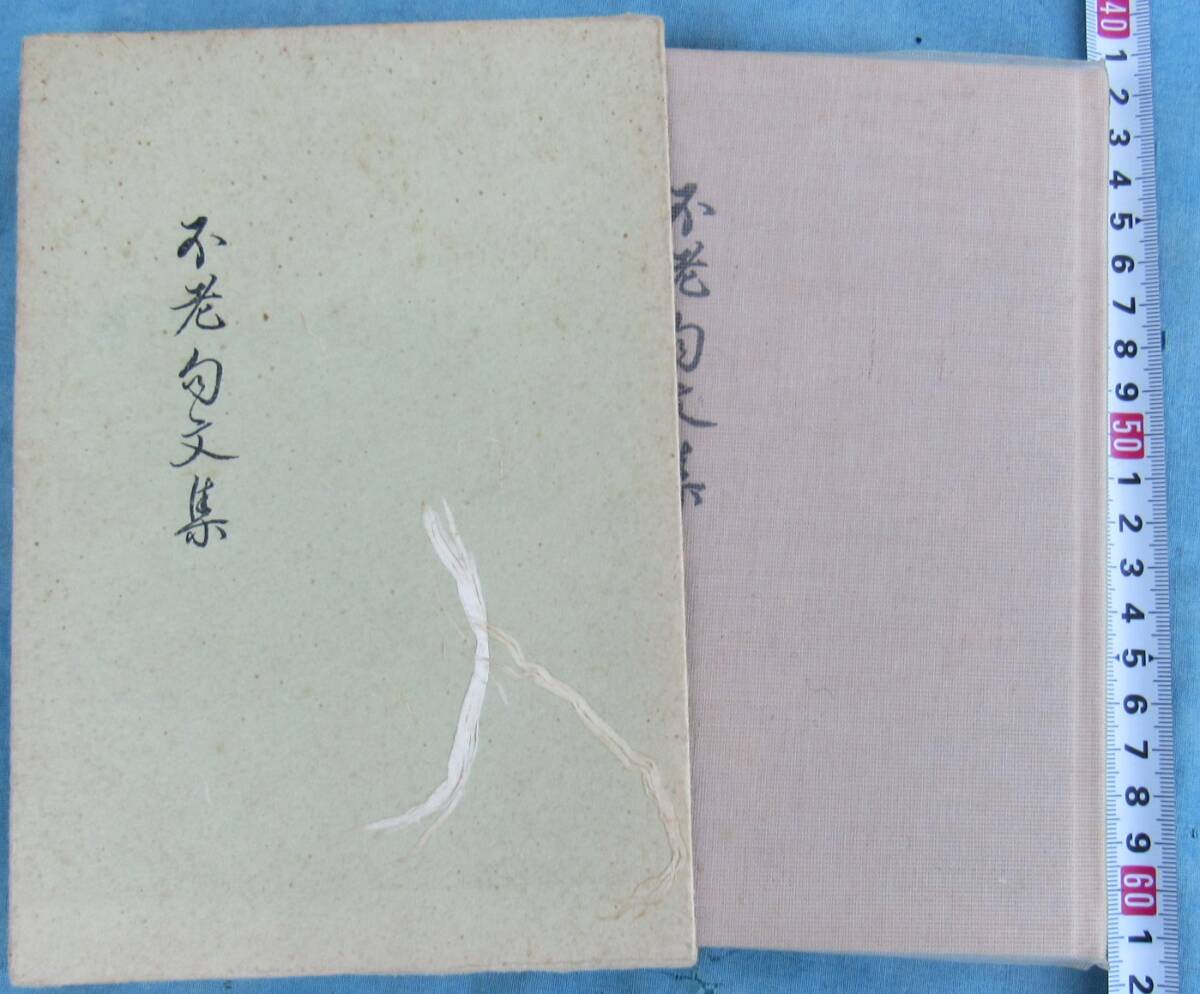 不老句文集
不老句文集
40
1
2
3
4
5
6
7
8
9
50
1
2
3
4
5
6
7
8
9
60
1
2